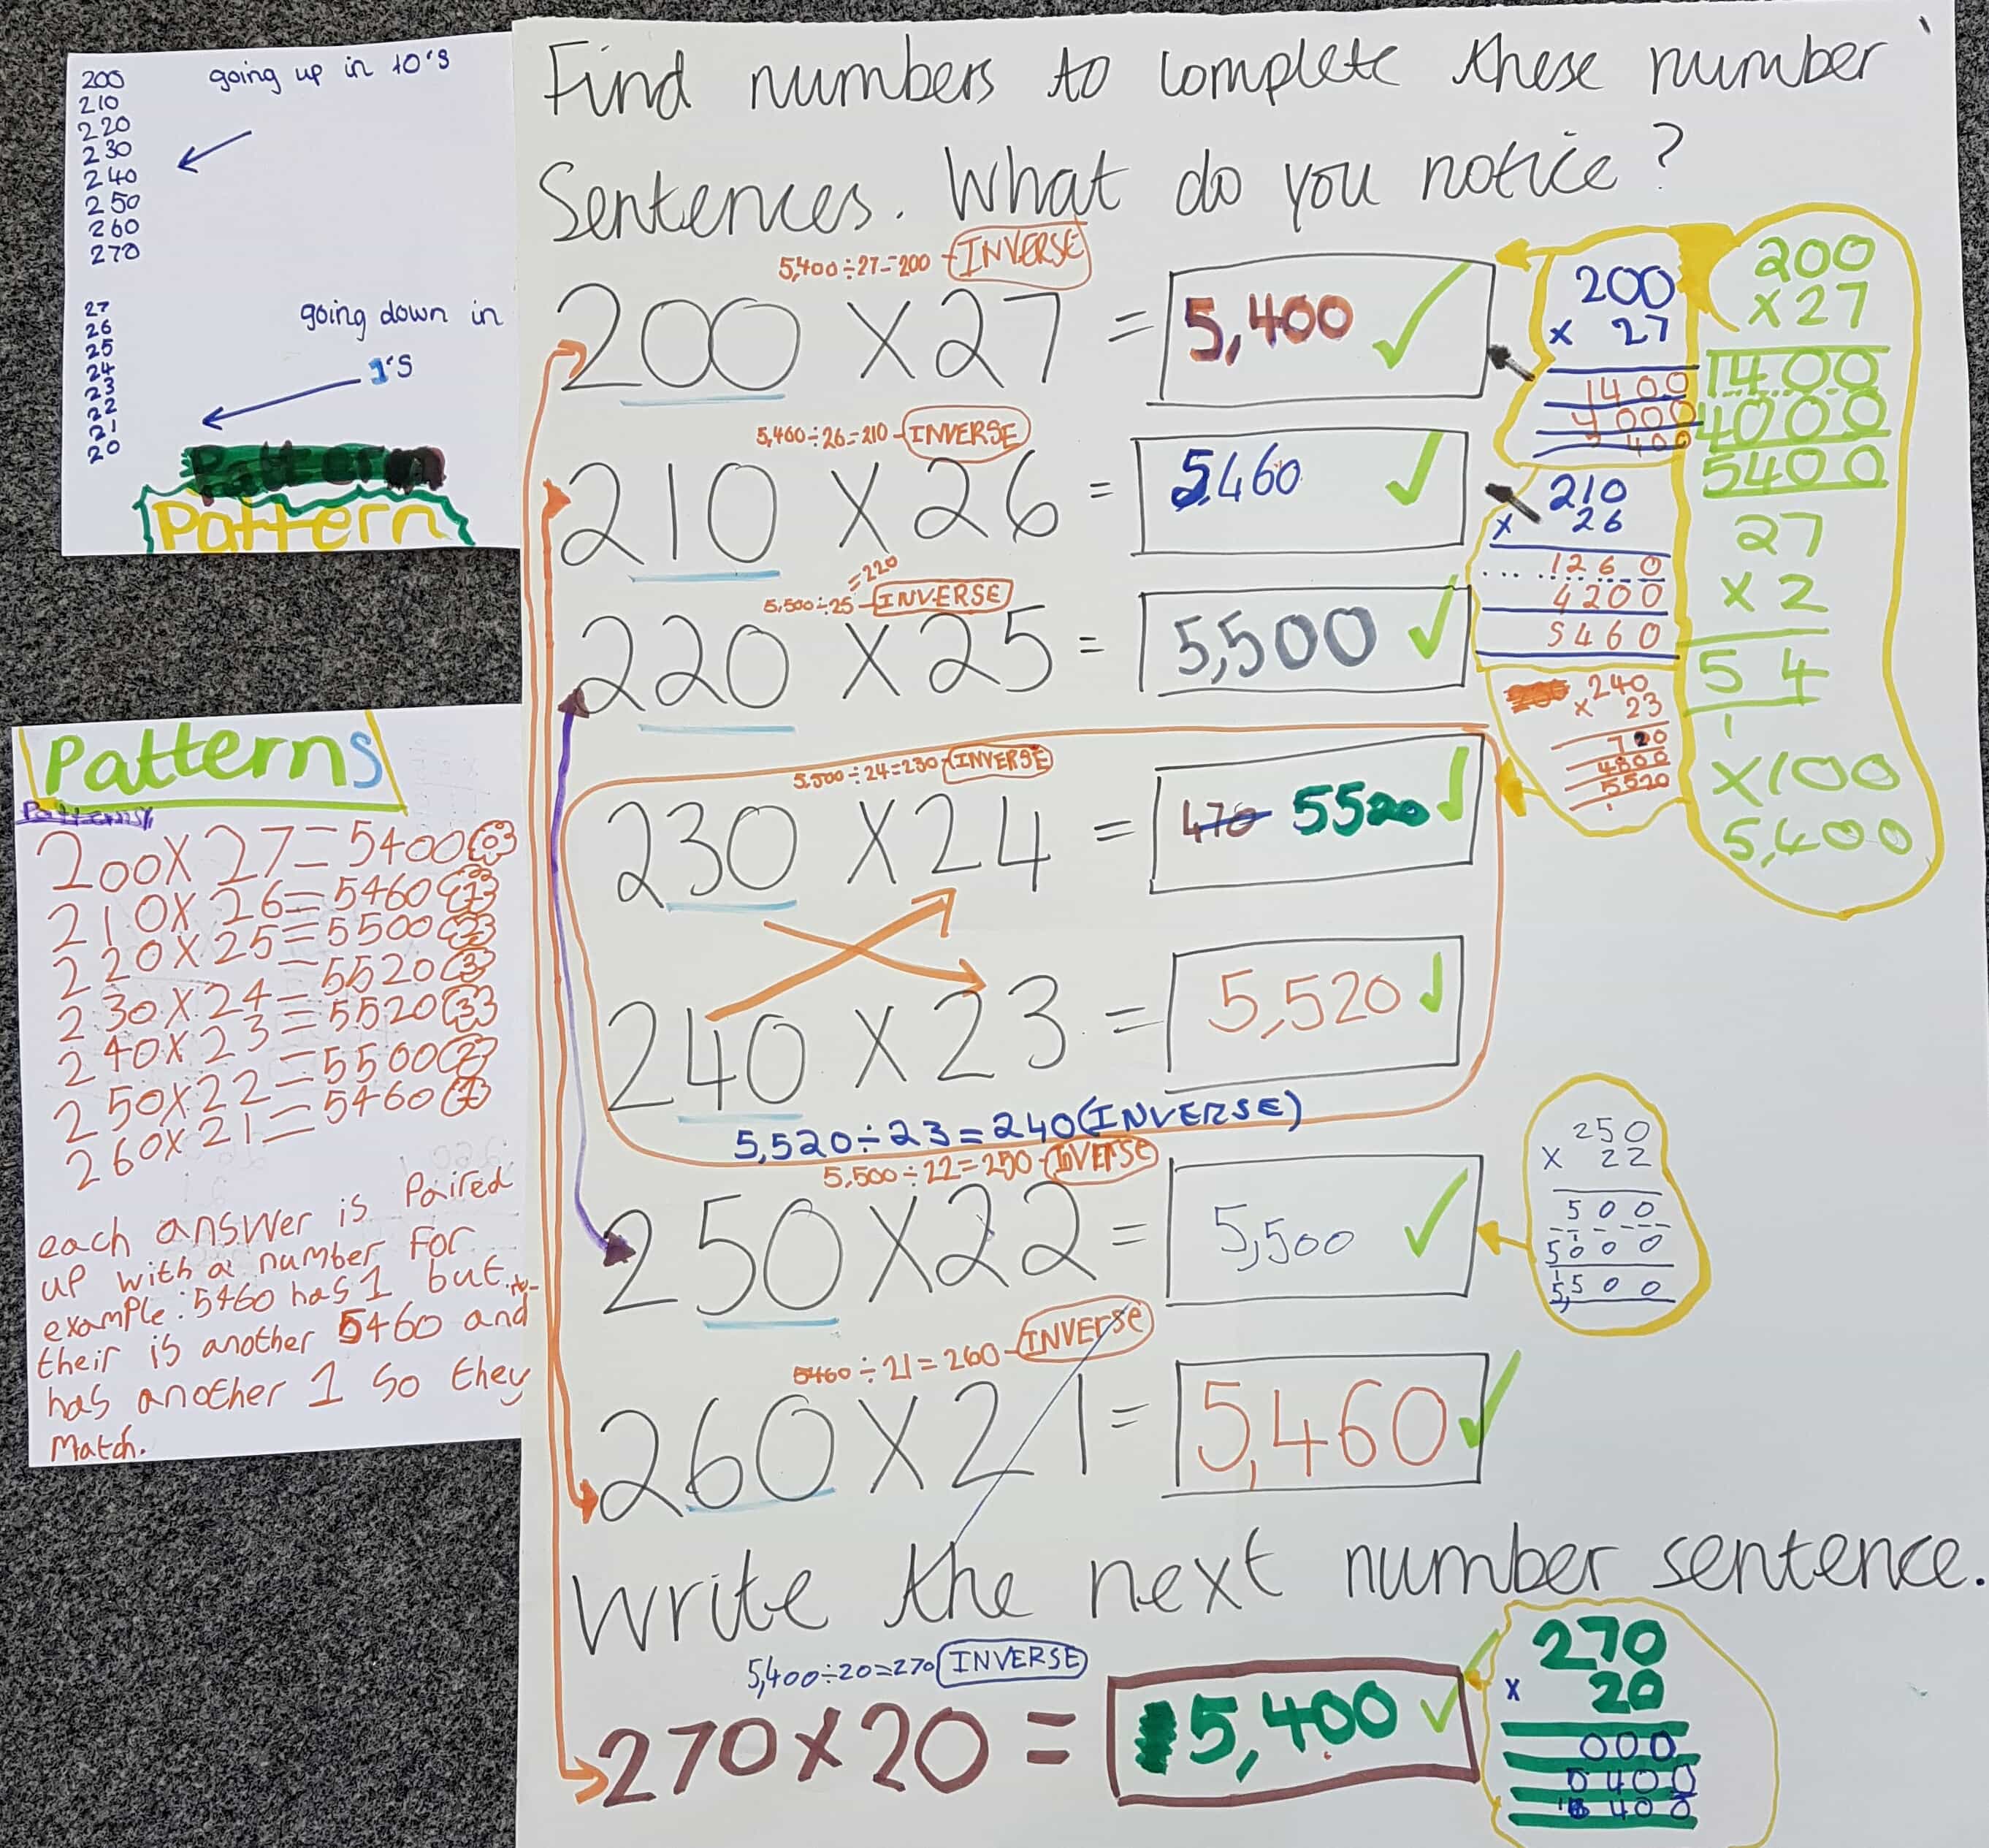 200 going up in 10's
210
220
230
240
250
260
270
27
26
25
24
23
22
21
20
going down in
1's
Pattern
Patterns
Patterns
200X27=5400 0
210X26=5460 1
220X25=5500 2
230X24=5520 3
240X23=5520 3
250X22=5500 2
260X21=5460 1
each answer is Paired
up with a number for
example: 5460 has 1 but
their is another 5460 and
has another 1 so they
Match.
Find numbers to complete these number
Sentences. What do you notice?
5,400÷27=200 - INVERSE
200 X 27 = 5,400 ✓
5,460÷26=210 - INVERSE
210 X 26 = 5,460 ✓
=220
5,500÷25 - INVERSE
220 X 25 = 5,500 ✓
5,500÷24=230 - INVERSE
230 X 24 = 470 5520 ✓
240 X 23 = 5,520 ✓
5,520÷23=240(INVERSE)
5,500÷22=250 - INVERSE
250 X 22 = 5,500 ✓
5460÷21=260 - INVERSE
260 X 21 = 5,460 ✓
Write the next number sentence.
5,400÷20=270 INVERSE
270 x 20 = 5,400 ✓
200
x 27
1400
4000
5400
210
x 26
1260
4200
5460
240
x 23
720
4800
5520
200
x 27
1400
4000
5400
27
x 2
54
1
x100
5,400
250
x 22
500
5000
5,500
270
x 20
000
5400
5400